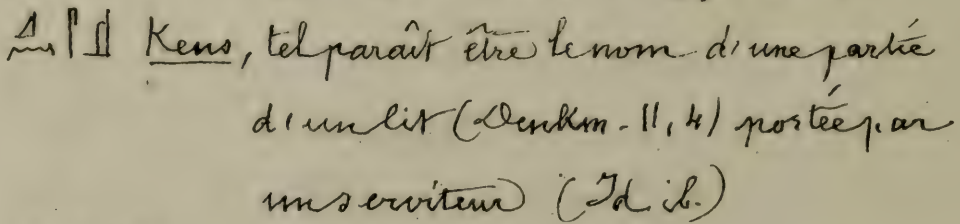 Kens, tel paraît être le nom d'une partie
d'un lit (Denkm. II, 4) portée par
un serviteur (Id. ib.)